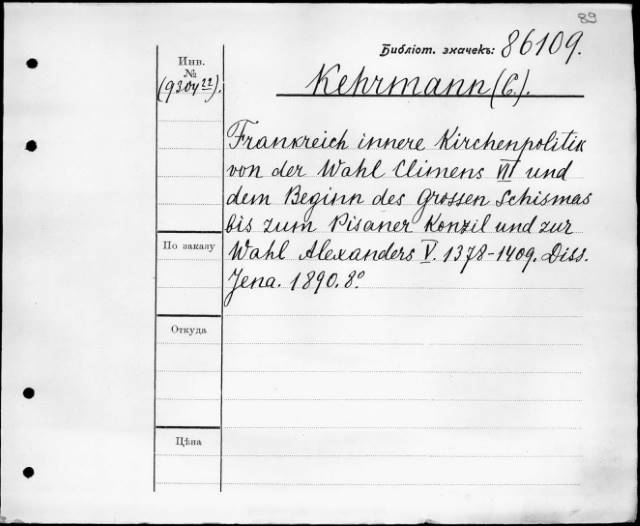 89
Библіот. значекъ: 86109.
Инв.
№
(9304 22).
Kehrmann (C.).
Frankreich innere Kirchenpolitik
von der Wahl Climens VII und
dem Beginn des Grossen Schismas
bis zum Pisaner Konzil und zur
Wahl Alexanders V. 1378-1409. Diss.
Jena. 1890. 8°
По заказу
Откуда
Цѣна